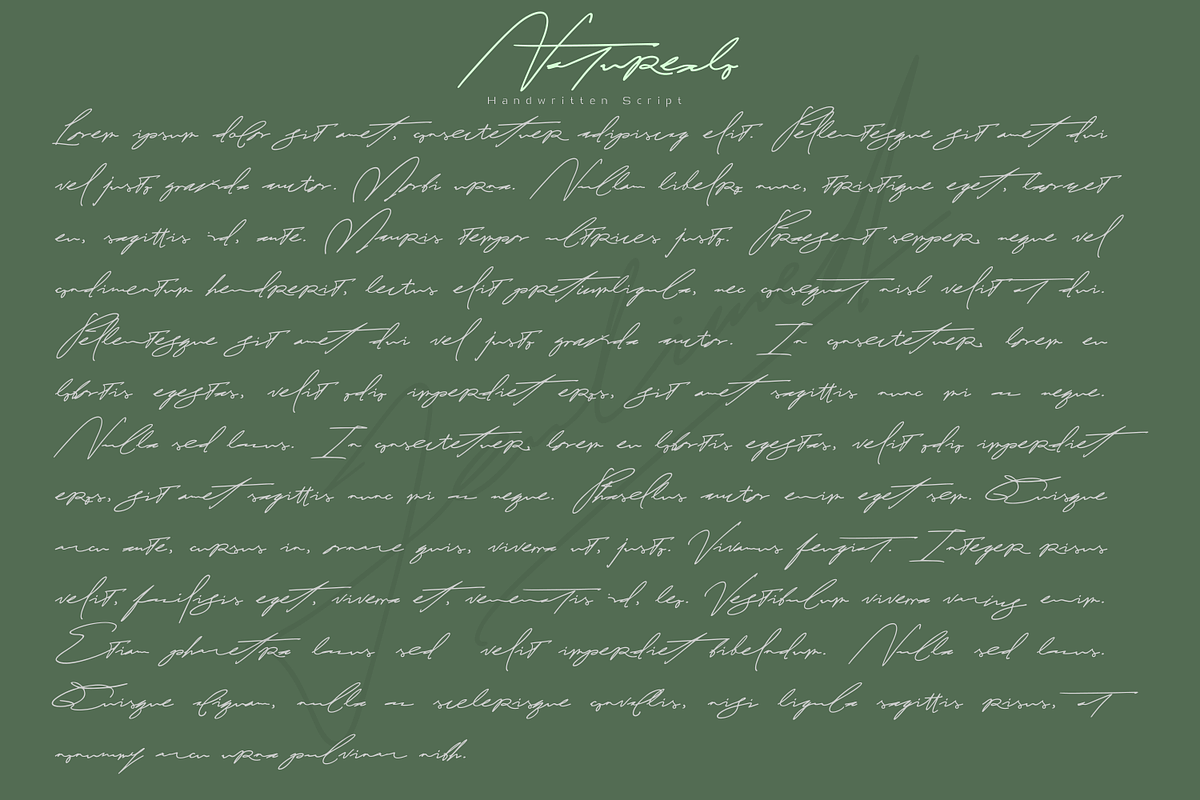 Naturealo
Handwritten Script
Lorem ipsum dolor sit amet, consectetuer adipiscing elit. Pellentesque sit amet dui
vel justo gravida auctor. Morbi urna. Nullam libelro nunc, tristique eget, laoreet
eu, sagittis id, ante. Mauris tempor ultrices justo. Praesent semper, neque vel
condimentum hendrerit, lectus elit pretiumligula, nec consequat nisl velit at dui.
Pellentesque sit amet dui vel justo gravida auctor. In consectetuer, lorem eu
lobortis egestas, velit odio imperdiet eros, sit amet sagittis nunc mi ac neque.
Nulla sed lacus. In consectetuer, lorem eu lobortis egestas, velit odio imperdiet
eros, sit amet sagittis nunc mi ac neque. Phasellus auctor enim eget sem. Quisque
arcu ante, cursus in, ornare quis, viverra ut, justo. Vivamus feugiat. Integer risus
velit, facilisis eget, viverra et, venenatis id, leo. Vestibulum viverra varius enim.
Etiam pharetra lacus sed velit imperdiet bibeladum. Nulla sed lacus.
Quisque aliquam, nulla ac scelerisque convallis, nisi ligula sagittis risus, at
nonummy arcu urna pulvinar nibh.